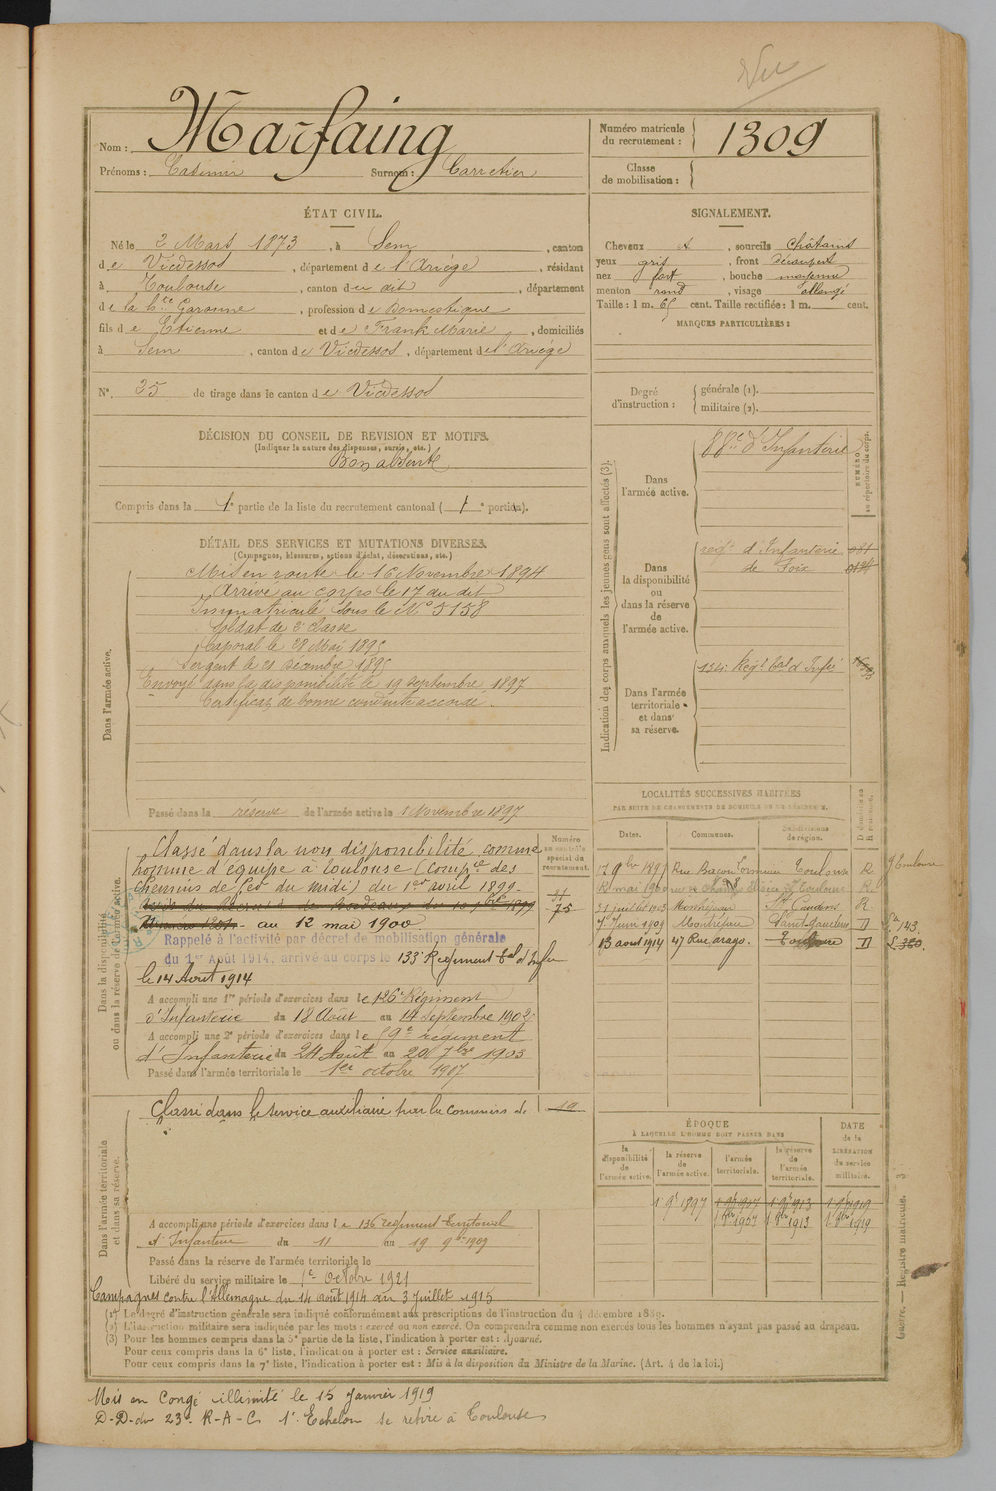 Vu
Nom : Marfaing
Prénoms : Casimir Surnom : Carretier
Numéro matricule du recrutement : 1309
Classe de mobilisation :
ÉTAT CIVIL.
Né le 2 Mars 1873, à Sem, canton
de Vicdessos, département de l'Ariège, résidant
à Toulouse, canton du dit, département
de la Hte Garonne, profession de Domestique
fils de Etienne et de Frank Marie, domiciliés
à Sem, canton de Vicdessos, département de l'Ariège
N° 25 de tirage dans le canton de Vicdessos
SIGNALEMENT.
Cheveux et, sourcils châtains
yeux gris, front découvert
nez fort, bouche moyenne
menton rond, visage allongé
Taille : 1 m. 65 cent. Taille rectifiée : 1 m. cent.
MARQUES PARTICULIÈRES :
Degré d'instruction : générale (1).
militaire (2).
DÉCISION DU CONSEIL DE REVISION ET MOTIFS.
(Indiquer la nature des dispenses, sursis, etc.)
Bon absent
Compris dans la 1e partie de la liste du recrutement cantonal ( 1e portion).
DÉTAIL DES SERVICES ET MUTATIONS DIVERSES.
(Campagnes, blessures, actions d'éclat, décorations, etc.)
Dans l'armée active.
Mis en route le 16 Novembre 1894
Arrivé au corps le 17 du dit
Immatriculé sous le N° 5158
Soldat de 2e classe
Caporal le 28 Mai 1895
Sergent le 21 Décembre 1895
Envoyé dans la disponibilité le 19 Septembre 1897
Certificat de bonne conduite accordé.
Passé dans la réserve de l'armée active le 1 Novembre 1897
Indication des corps auxquels les jeunes gens sont affectés (3).
NUMÉRO au répertoire du corps.
Dans l'armée active.
88e d'Infanterie
Dans la disponibilité ou dans la réserve de l'armée active.
regt d'Infanterie
de Foix
Dans l'armée territoriale et dans sa réserve.
134e Régt tal d'Infie
LOCALITÉS SUCCESSIVES HABITÉES
PAR SUITE DE CHANGEMENTS DE DOMICILE OU DE RÉSIDENCE.
Dates. Communes. Subdivisions de région.
17 9bre 1897 Rue Bacou Toulouse R
R mai 1900 Toulouse R
31 juillet 1903 Montréjeau St Gaudens R
7 Juin 1909 Montréjeau Saint-Gaudens D
13 août 1914 47 Rue arago. Toulouse D
143.
Dans la disponibilité ou dans la réserve de l'armée active.
Numéro au contrôle spécial du recrutement.
Classé dans la non disponibilité comme
homme d'équipe à Toulouse (Compie des
chemins de fer du midi) du 1er avril 1899
75
au 12 mai 1900
Rappelé à l'activité par décret de mobilisation générale
du 1er Août 1914, arrivé au corps le 133e Régiment tal d'Infie
le 14 Août 1914
A accompli une 1re période d'exercices dans le 126e Régiment
d'Infanterie du 18 Août au 14 Septembre 1902
A accompli une 2e période d'exercices dans le 59e régiment
d'Infanterie du 24 Août au 20 7bre 1905
Passé dans l'armée territoriale le 1er octobre 1907
Dans l'armée territoriale et dans sa réserve.
Classé dans le service auxiliaire par la commission de
A accompli une période d'exercices dans le 136 régiment Territorial
d'Infanterie du 11 au 19 9bre 1909
Passé dans la réserve de l'armée territoriale le
Libéré du service militaire le 1er octobre 1921
Campagnes contre l'Allemagne du 14 août 1914 au 3 Juillet 1915
ÉPOQUE
À LAQUELLE L'HOMME DOIT PASSER DANS
la disponibilité de l'armée active.
la réserve de l'armée active.
l'armée territoriale.
la réserve de l'armée territoriale.
DATE de la LIBÉRATION du service militaire.
1 9e 1897 1 9e 1907 1 9e 1913 1 9e 1919
1 8bre 1907 1 8bre 1913 1 8bre 1919
Guerre. — Registre matricule. 3
(1) Le degré d'instruction générale sera indiqué conformément aux prescriptions de l'instruction du 4 décembre 1889.
(2) L'instruction militaire sera indiquée par les mots : exercé ou non exercé. On comprendra comme non exercés tous les hommes n'ayant pas passé au drapeau.
(3) Pour les hommes compris dans la 5e partie de la liste, l'indication à porter est : Ajourné.
Pour ceux compris dans la 6e liste, l'indication à porter est : Service auxiliaire.
Pour ceux compris dans la 7e liste, l'indication à porter est : Mis à la disposition du Ministre de la Marine. (Art. 4 de la loi.)
Mis en Congé illimité le 15 Janvier 1919
D-D-du 23e R-A-C 1e Echelon se retire à Toulouse